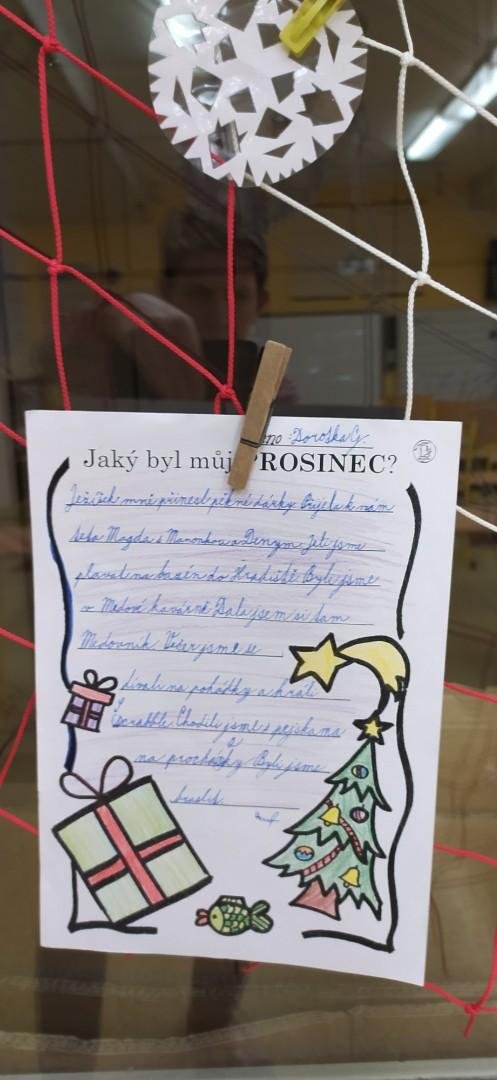 no: Doroťka G.
Jaký byl můj PROSINEC?
Ježíšek mně přinesl pěkné dárky. Přijela k nám
teta Magda s Maronkou a Denym. Jeli jsme
plavat na bazén do Hradiště. Byli jsme
v Medové kavárně. Dala jsem si tam
Medovník. Večer jsme se
dívali na pohádky a hráli
Scrabble. Chodili jsme s pejskama
na procházky. Byli jsme
bruslit.